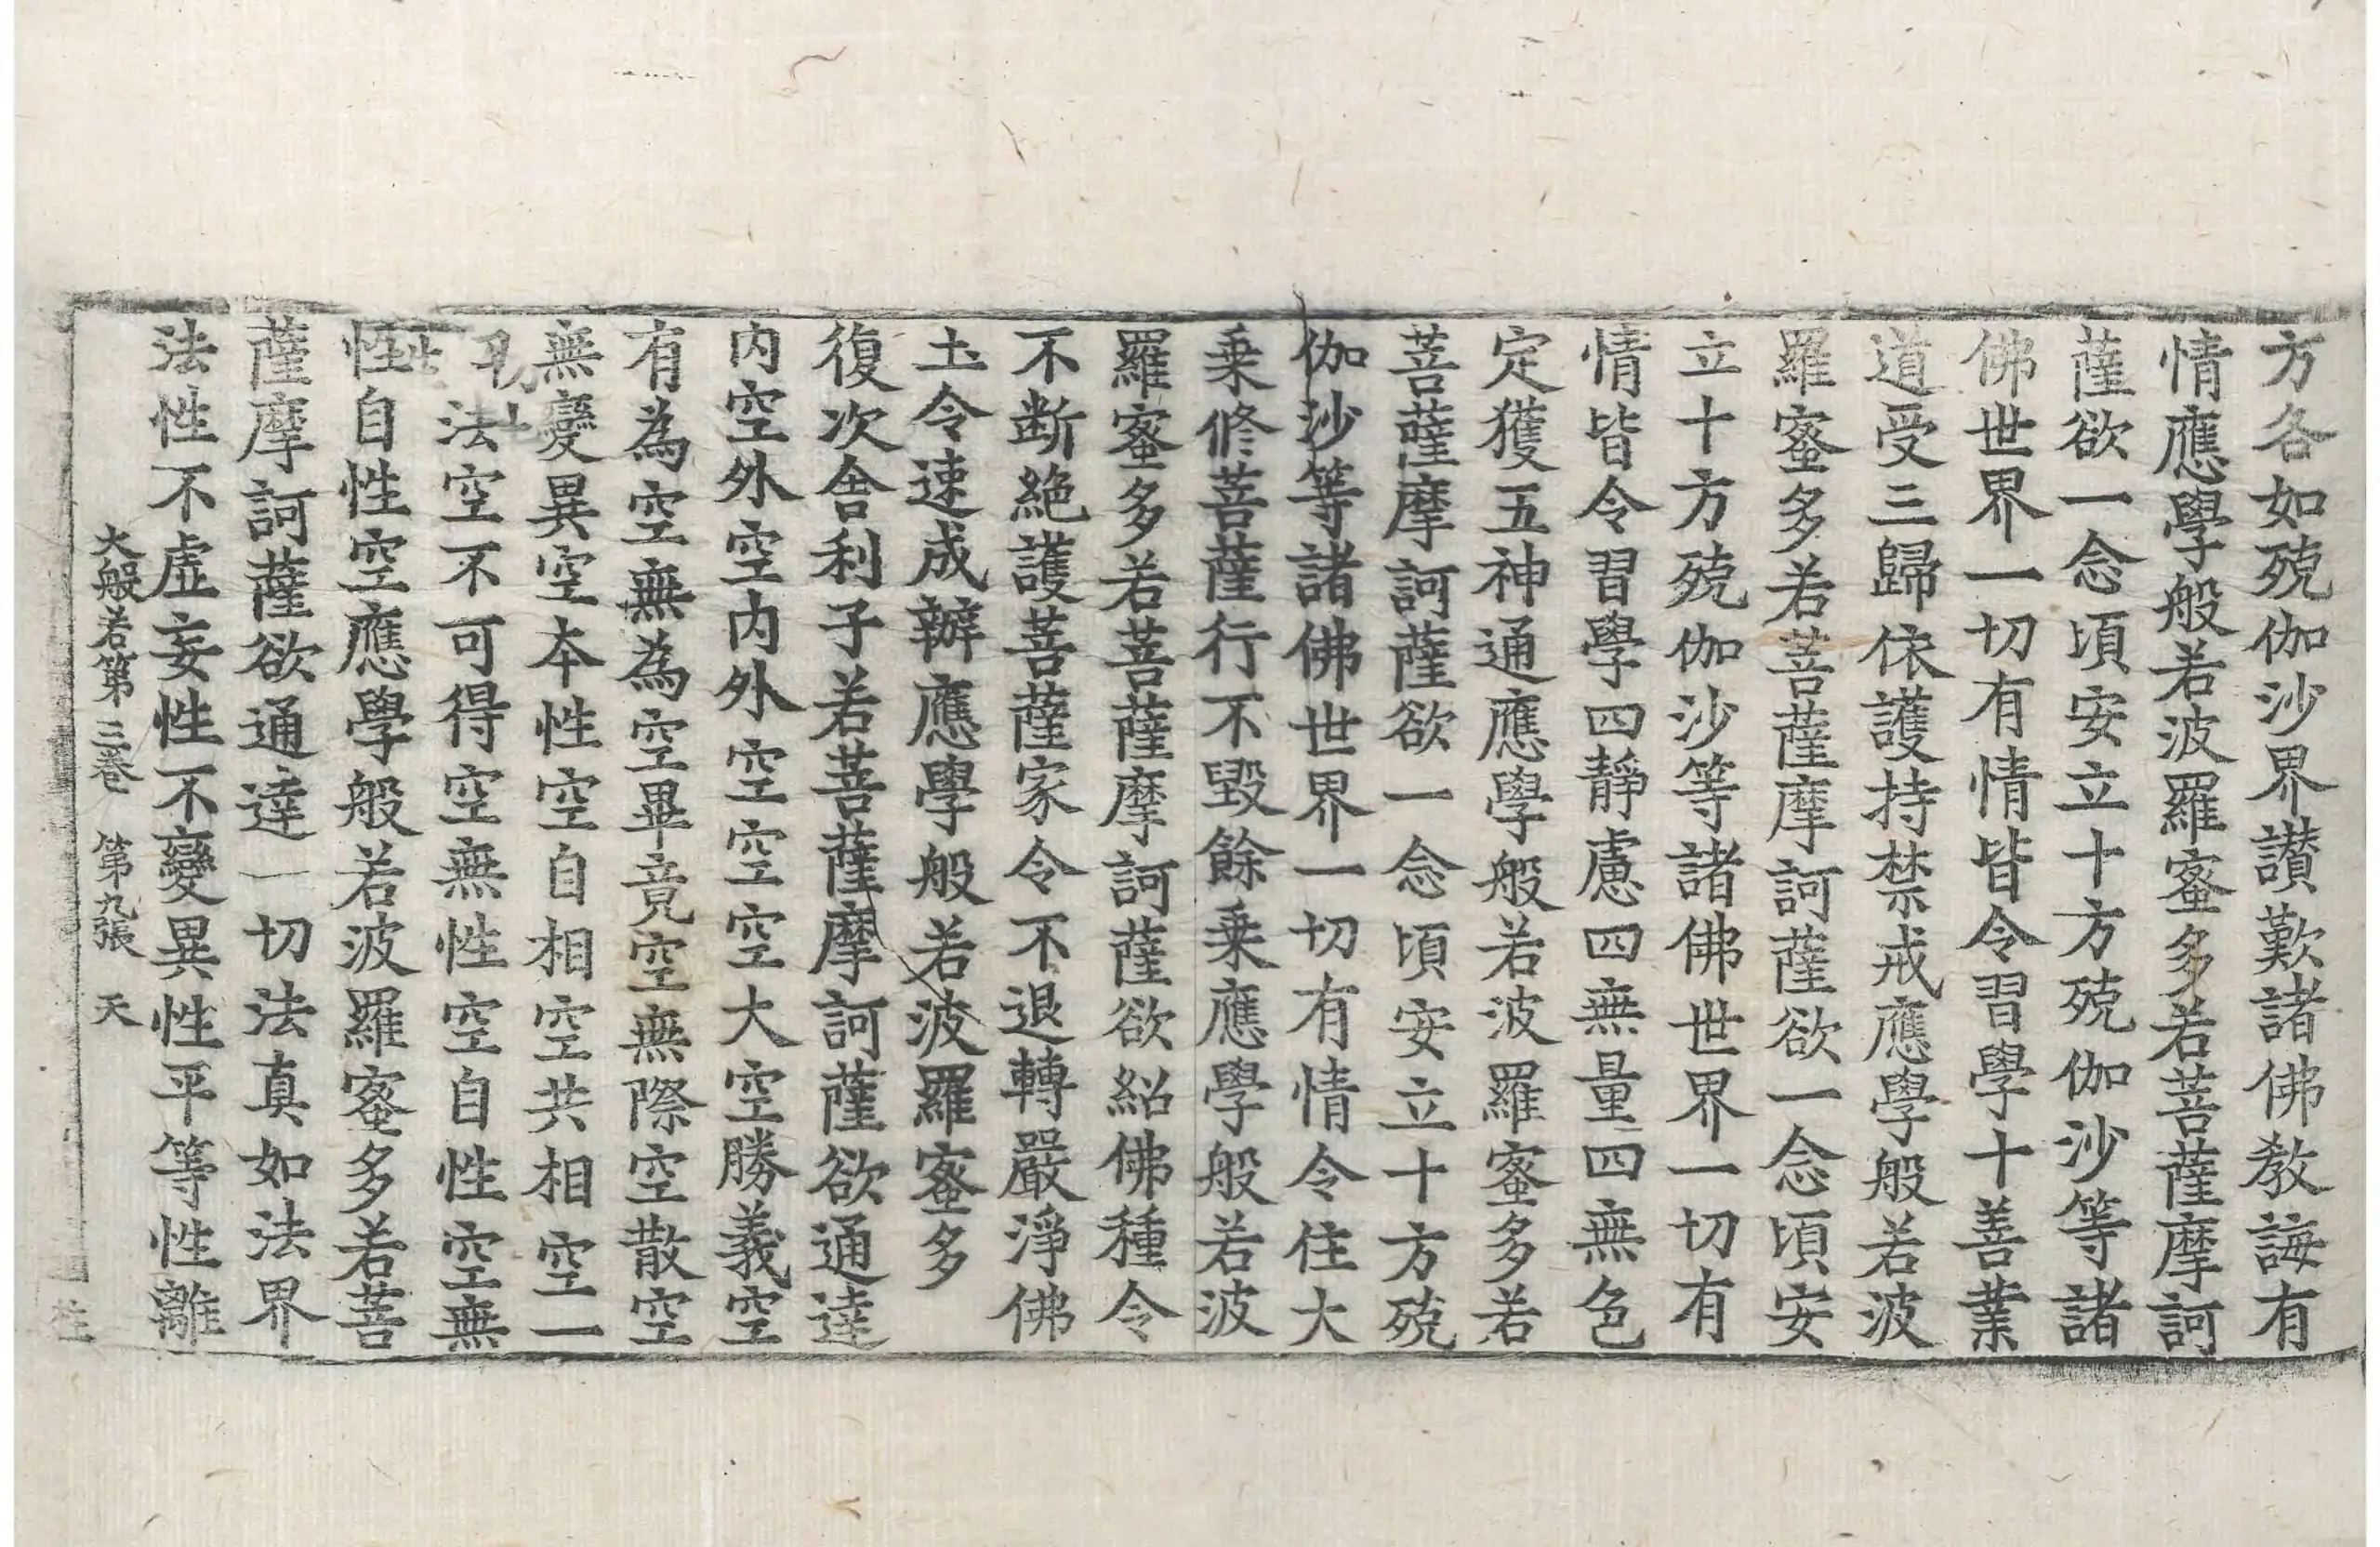 方各如殑伽沙界讃歎諸佛教誨有
情應學般若波羅蜜多若菩薩摩訶
薩欲一念頃安立十方殑伽沙等諸
佛世界一切有情皆令習學十善業
道受三歸依護持禁戒應學般若波
羅蜜多若菩薩摩訶薩欲一念頃安
立十方殑伽沙等諸佛世界一切有
情皆令習學四靜慮四無量四無色
定獲五神通應學般若波羅蜜多若
菩薩摩訶薩欲一念頃安立十方殑
伽沙等諸佛世界一切有情令住大
乗修菩薩行不毀餘乗應學般若波
羅蜜多若菩薩摩訶薩欲紹佛種令
不断絶護菩薩家令不退轉嚴淨佛
土令速成辦應學般若波羅蜜多
復次舍利子若菩薩摩訶薩欲通達
内空外空内外空空空大空勝義空
有為空無為空畢竟空無際空散空
無變異空本性空自相空共相空一
切法空不可得空無性空自性空無
性自性空應學般若波羅蜜多若菩
薩摩訶薩欲通達一切法真如法界
法性不虚妄性不變異性平等性離
大般若第三卷 第九張 天